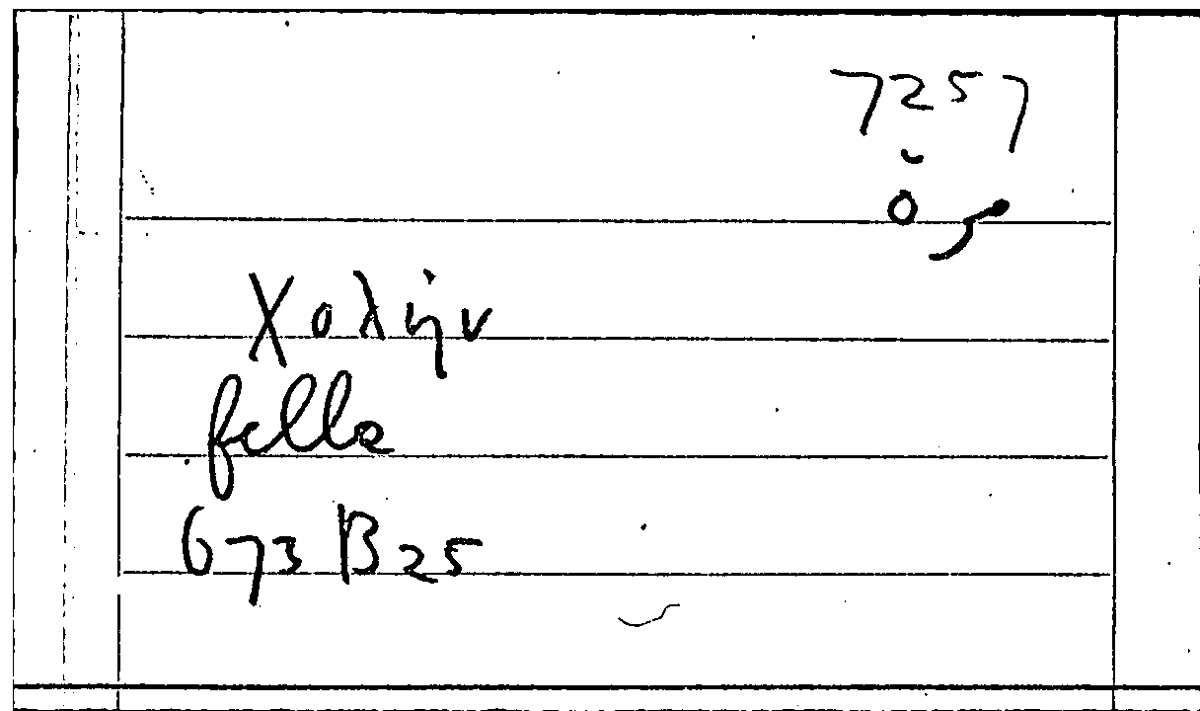 7257
χολήν
fella
673 B 25